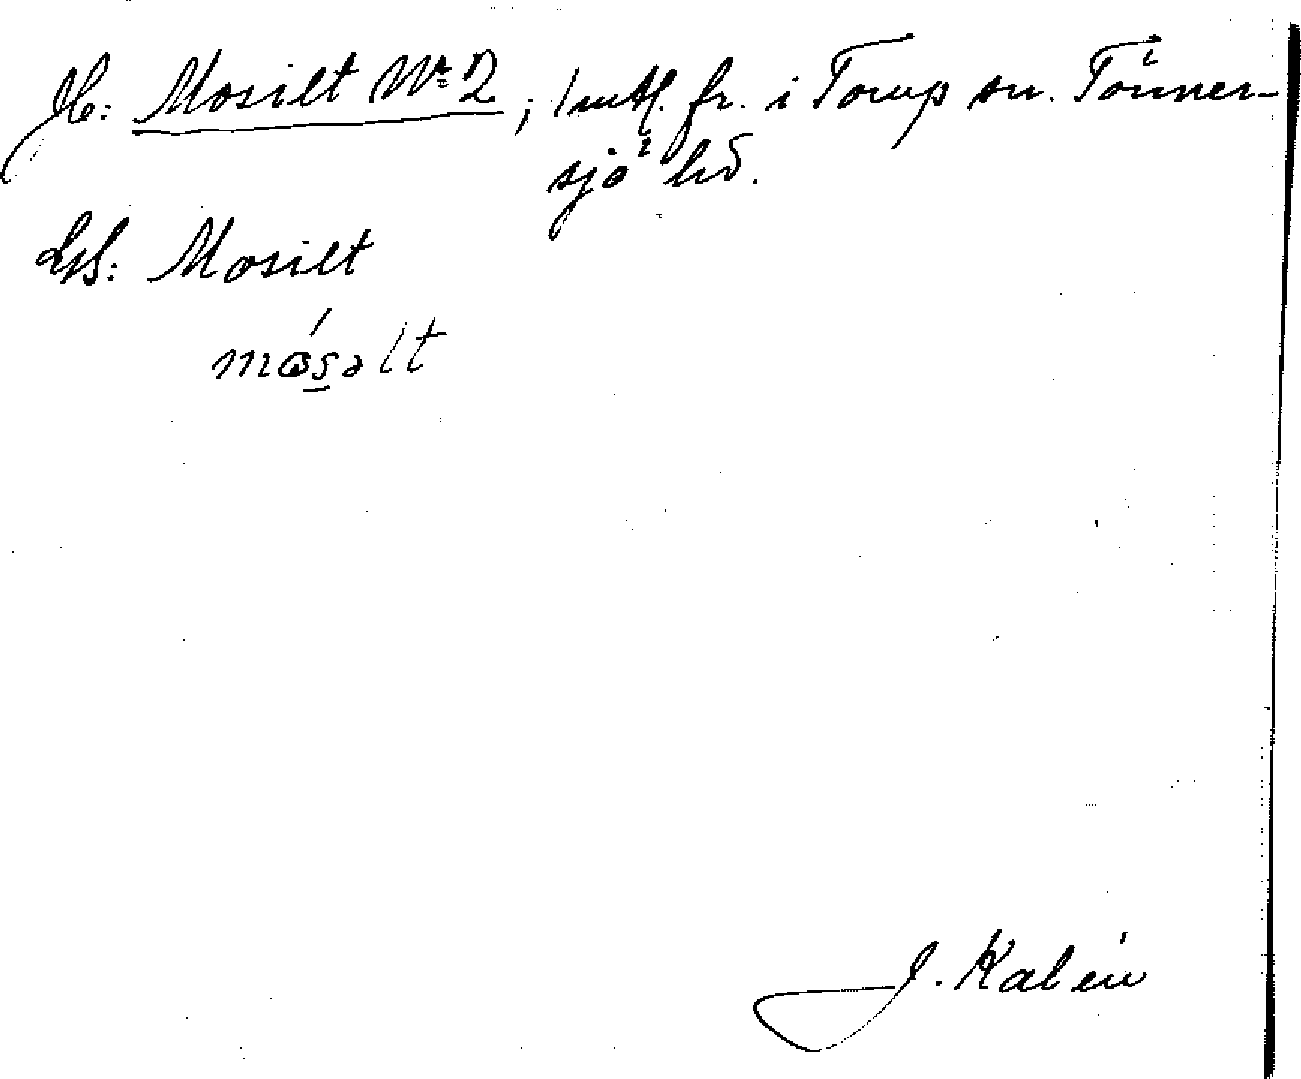 Jb: Mosilt Nr 2, 1 mtl. fr. i Torup sn. Tönner-
sjö hd.
Mosilt
mósəlt
J. Kalén